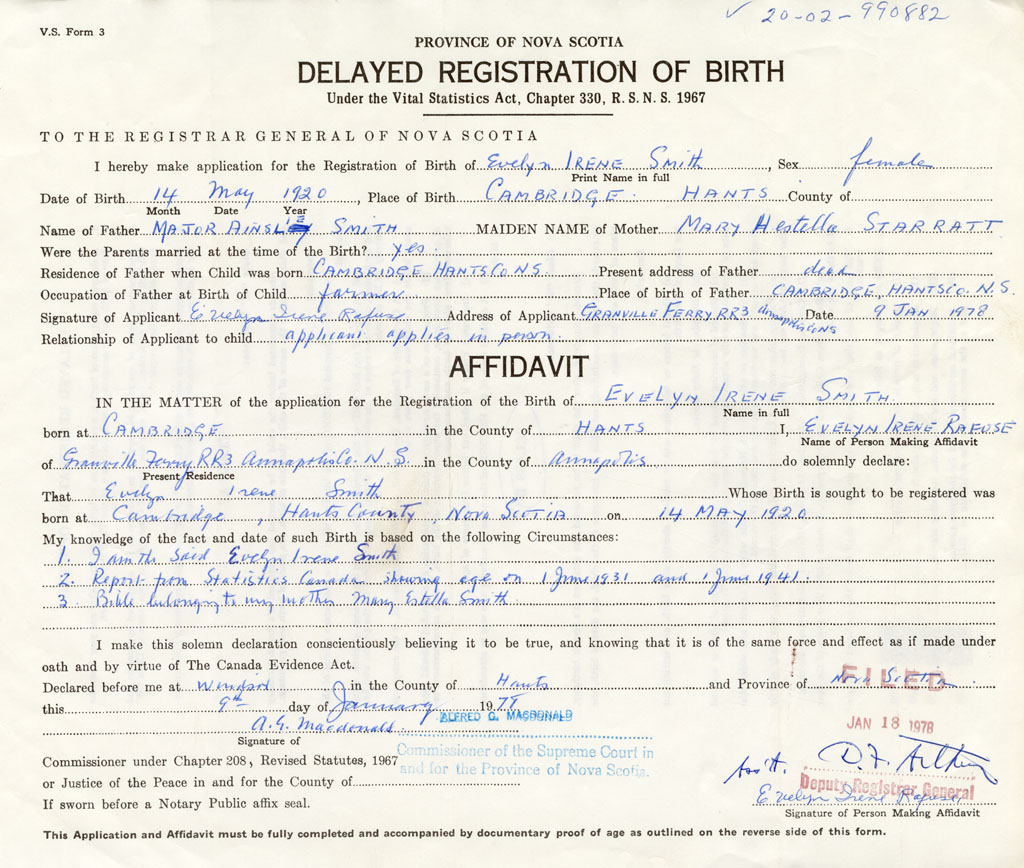 V.S. Form 3
✓ 20-02-990882
PROVINCE OF NOVA SCOTIA
DELAYED REGISTRATION OF BIRTH
Under the Vital Statistics Act, Chapter 330, R.S.N.S. 1967
TO THE REGISTRAR GENERAL OF NOVA SCOTIA
I hereby make application for the Registration of Birth of Evelyn IRENE Smith, Sex female
Print Name in full
Date of Birth 14 May 1920, Place of Birth CAMBRIDGE. HANTS County of
Month Date Year
Name of Father MAJOR AINSLIE SMITH MAIDEN NAME of Mother MARY Hestella STARRATT
Were the Parents married at the time of the Birth? yes.
Residence of Father when Child was born CAMBRIDGE HANTS CO NS Present address of Father dead
Occupation of Father at Birth of Child farmer Place of birth of Father CAMBRIDGE, HANTS Co. N.S.
Signature of Applicant Evelyn Irene Rafuse Address of Applicant GRANVILLE FERRY RR3 Annapolis Co NS Date 9 JAN 1978
Relationship of Applicant to child applicant applies in person.
AFFIDAVIT
IN THE MATTER of the application for the Registration of the Birth of EVELYN IRENE SMITH
Name in full
born at CAMBRIDGE in the County of HANTS I, EVELYN IRENE RAFUSE
Name of Person Making Affidavit
of Granville Ferry RR3 Annapolis Co. N.S. in the County of Annapolis do solemnly declare:
Present Residence
That Evelyn Irene Smith Whose Birth is sought to be registered was
born at Cambridge, Hants County, NOVA SCOTIA on 14 MAY 1920
My knowledge of the fact and date of such Birth is based on the following Circumstances:
1. I am the said Evelyn Irene Smith
2. Report from Statistics Canada showing age on 1 June 1931 and 1 June 1941.
3 Bible belonging to my mother Mary Estella Smith
I make this solemn declaration conscientiously believing it to be true, and knowing that it is of the same force and effect as if made under
oath and by virtue of The Canada Evidence Act.
Declared before me at Windsor in the County of Hants and Province of Nova Scotia
FILED
this 9th day of January 1978
JAN 18 1978
A.G. Macdonald ALFRED G. MACDONALD
Signature of
Commissioner of the Supreme Court in
and for the Province of Nova Scotia.
Commissioner under Chapter 208, Revised Statutes, 1967
or Justice of the Peace in and for the County of
Ass't. Deputy Registrar General
If sworn before a Notary Public affix seal.
Evelyn Irene Rafuse
Signature of Person Making Affidavit
This Application and Affidavit must be fully completed and accompanied by documentary proof of age as outlined on the reverse side of this form.